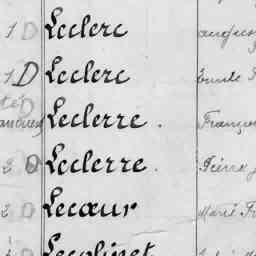 1 D Leclerc
1 D Leclerc Emile
D Leclerre . François
2 D Leclerre . Pierre
2 D Lecœur Marie Fr
Lecolinet